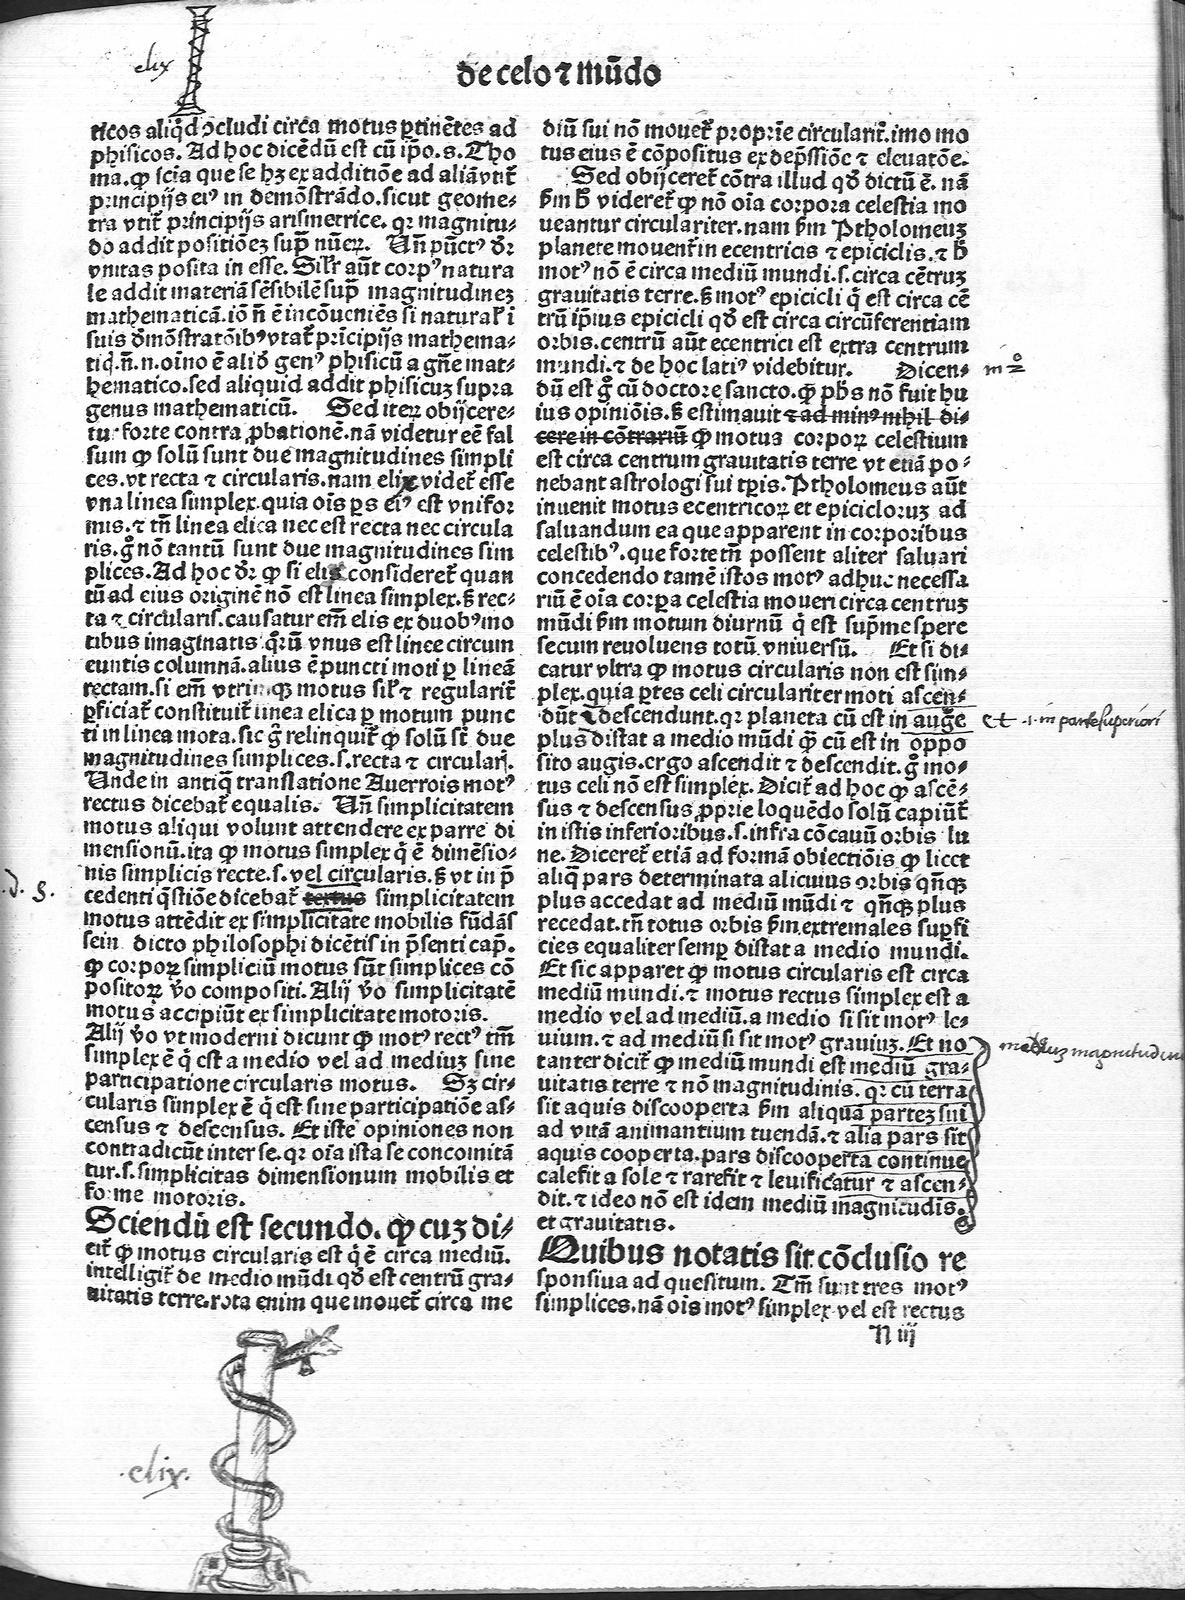 elix
de celo ⁊ mūdo
ticos aliqd̄ ↄcludi circa motus ꝑtinētes ad
phisicos. Ad hoc dicēdū est cū ip̄o.s.Tho
ma.ꝙ scīa que se hꝫ ex additiōe ad aliā vtit̄
principijs eiꝰ in demōstrādo.sicut geome⸗
tra vtit̄ principijs arismetrice. qꝛ magnitu⸗
do addit positiōeꝫ sup̄ nūeꝝ. Un̄ pūctꝰ dr̄
vnitas posita in esse. Silr̄ aūt corpꝰ natura
le addit materiā sēsibilē sup̄ magnitudineꝫ
mathematicā.iō n̄ ē incōueniēs si natural̄ i
suis dm̄ōstratōibꝰ vtat̄ prīcipijs mathema⸗
tiq̄.n̄.n.oīno ē aliđ genꝰ phisicū a gn̄e mat⸗
hematico.sed aliquid addit phisicuꝫ supra
genus mathematicū. Sed iteꝝ obijcere⸗
tur forte contra ꝓbationē.nā videtur eē fal
sum ꝙ solū sunt due magnitudines simpli
ces.vt recta ⁊ circularis.nam elix videt̄ esse
vna linea simplex.quia oīs ꝑs eiꝰ est vnifor
mis.⁊ tn̄ linea elica nec est recta nec circula
ris.g̊ nō tantū sunt due magnitudines sim
plices.Ad hoc dr̄ ꝙ si elix consideret̄ quan
tū ad eius originē nō est linea simplex.ß rec⸗
ta ⁊ circularis.causatur em̄ elis ex duobꝰ mo
tibus imaginatis qͦrū vnus est linee circum
euntis columnā.alius ē puncti moti ꝑ lineā
rectam.si em̄ vterqꝫ motus sil̄r ⁊ regularit̄
ꝑficiat̄ constituit̄ linea elica ꝑ motum punc
ti in linea mota.sic g̊ relinquit̄ ꝙ solū st̄ due
magnitudines simplices.s.recta ⁊ circular̄.
Unde in antiq̄ translatione Auerrois motꝰ
rectus dicebat̄ equalis. Un̄ simplicitatem
motus aliqui volunt attendere ex parre di
mensionū.ita ꝙ motus simplex q̄ ē dimēsio⸗
nis simplicis recte.s.vel circularis.ß vt in p̄
cedenti q̄stiōe dicebat̄ textus simplicitatem
motus attēdit ex simplicitate mobilis fūdās
se in dicto philosophi dicētis in p̄senti cap̄.
ꝙ corpoꝝ simpliciū motus sūt simplices cō
positoꝝ v̄o compositi. Alij v̄o simplicitatē
motus accipiūt ex simplicitate motoris.
Alij v̄o vt moderni dicunt ꝙ motꝰ rectꝰ tm̄
simplex ē q̄ est a medio vel ad mediuꝫ sine
participatione circularis motus. Sꝫ cir⸗
cularis simplex ē q̄ est sine participatiōe as⸗
census ⁊ descensus. Et iste opiniones non
contradicūt inter se.qꝛ oīa ista se concomitā
tur.s.simplicitas dimensionum mobilis et
forme motoris.
Sciendū est secundo. ꝙ cuꝫ di⸗
cit̄ ꝙ motus circularis est q̄ ē circa mediū.
intelligit̄ de medio mūdi qđ est centrū gra⸗
uitatis terre.rota enim que mouet̄ circa me
.elix.
diū sui nō mouet̄ proprīe circularit̄.imo mo
tus eius ē cōpositus ex dep̄ssiōe ⁊ eleuatōe.
Sed obijceret̄ cōtra illud qđ dictū ē. nā
ẜm ħ videret̄ ꝙ nō oīa corpora celestia mo
ueantur circulariter.nam ẜm Ptholomeuꝫ
planete mouent̄ in ecentricis ⁊ epiciclis.⁊ ħ
motꝰ nō ē circa mediū mundi.s.circa cētruꝫ
grauitatis terre.ß motꝰ epicicli q̄ est circa cē
trū ip̄ius epicicli qđ est circa circūferentiam
orbis.centrū aūt ecentrici est extra centrum
mundi.⁊ de hoc latiꝰ videbitur. Dicen⸗
dū est g̊ cū doctore sancto.ꝙ ph̄s nō fuit hu
ius opiniōis.ß estimauit ⁊ ad minꝰ nihil di⸗
cere in cōtrariū ꝙ motus corpoꝝ celestium
est circa centrum grauitatis terre vt etiā po⸗
nebant astrologi sui tp̄is.Ptholomeus aūt
inuenit motus ecentricoꝝ et epicicloruꝫ ad
saluandum ea que apparent in corporibus
celestibꝰ.que forte tn̄ possent aliter saluari
concedendo tamē istos motꝰ adhuc necessa
riū ē oīa corꝑa celestia moueri circa centruꝫ
mūdi ẜm motum diurnū q̄ est sup̄me spere
secum reuoluens totū vniuersū. Et si di⸗
catur vltra ꝙ motus circularis non est sim⸗
plex.quia ꝑtes celi circulariter moti ascen⸗
dūt ⁊ descendunt.qꝛ planeta cū est in auge
plus distat a medio mūdi ꝙ̄ cū est in oppo
sito augis.ergo ascendit ⁊ descendit.g̊ mo⸗
tus celi nō est simplex. Dicit̄ ad hoc ꝙ ascē⸗
sus ⁊ descensus ꝓprie loquēdo solū capiūt̄
in istis inferioribus.s.infra cōcauū orbis lu
ne. Diceret̄ etiā ad formā obiectiōis ꝙ licet
aliq̄ pars determinata alicuius orbis qn̄qꝫ
plus accedat ad mediū mūdi ⁊ qn̄qꝫ plus
recedat.tn̄ totus orbis ẜm extremales suꝑfi
cies equaliter semꝑ distat a medio mundi.
Et sic apparet ꝙ motus circularis est circa
mediū mundi.⁊ motus rectus simplex est a
medio vel ad mediū.a medio si sit motꝰ le⸗
uium.⁊ ad mediū si sit motꝰ grauiuꝫ. Et no
tanter dicit̄ ꝙ mediū mundi est mediū gra⸗
uitatis terre ⁊ nō magnitudinis. qꝛ cū terra
sit aquis discooperta ẜm aliquā parteꝫ sui
ad vitā animantium tuendā.⁊ alia pars sit
aquis cooperta.pars discooperta continue
calefit a sole ⁊ rarefit ⁊ leuificatur ⁊ ascen⸗
dit.⁊ ideo nō est idem mediū magnitudis.
et grauitatis.
Quibus notatis sit cōclusio re
sponsiua ad quesitum. Tm̄ sunt tres motꝰ
simplices.nā oīs motꝰ simplex vel est rectus
N iij
et .i. in parte superiori